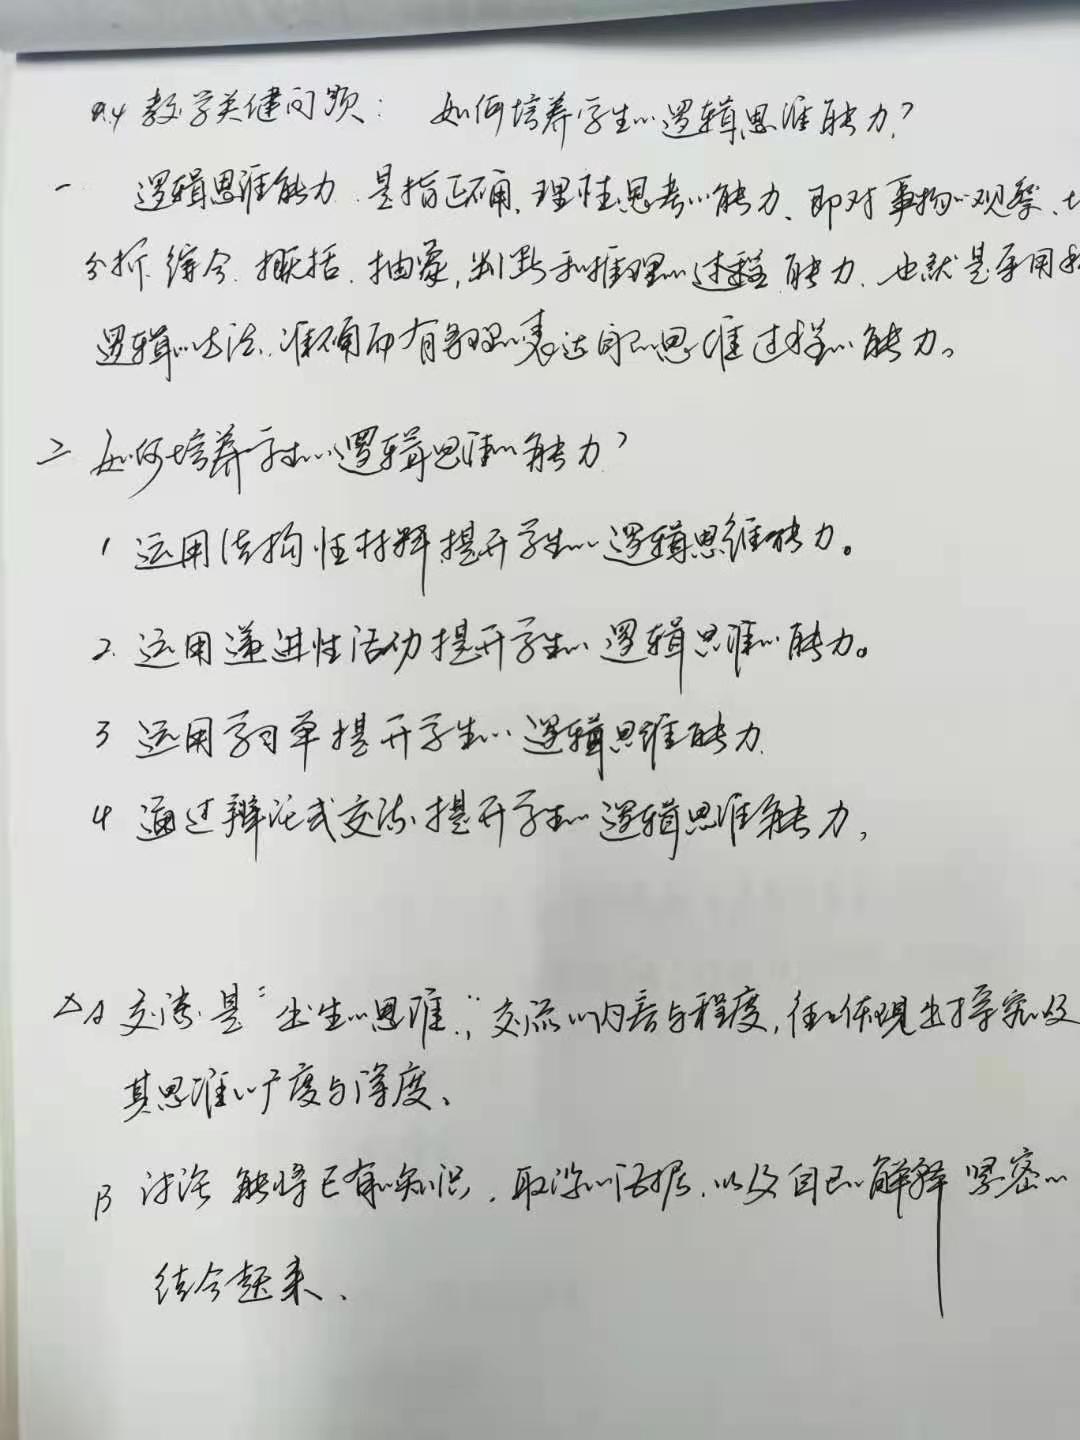 9.4 教学关键问题： 如何培养学生的逻辑思维能力？
一 逻辑思维能力是指正确、理性思考的能力、即对事物的观察、
分析、综合、概括、抽象、判断和推理的过程能力、也就是采用
逻辑的方法、准确而有条理的表达自己思维过程的能力。
二 如何培养学生的逻辑思维的能力？
1 运用结构性材料提升学生的逻辑思维能力。
2. 运用递进性活动提升学生的逻辑思维的能力。
3 运用学习单提升学生的逻辑思维能力.
4 通过辩论式交流提升学生的逻辑思维能力，
A 交流是“出生的思维”，交流的内容与程度，往往体现出探究以及
其思维的广度与深度、
B 讨论能将已有的知识、取得的证据、以及自己的解释紧密的
结合起来、